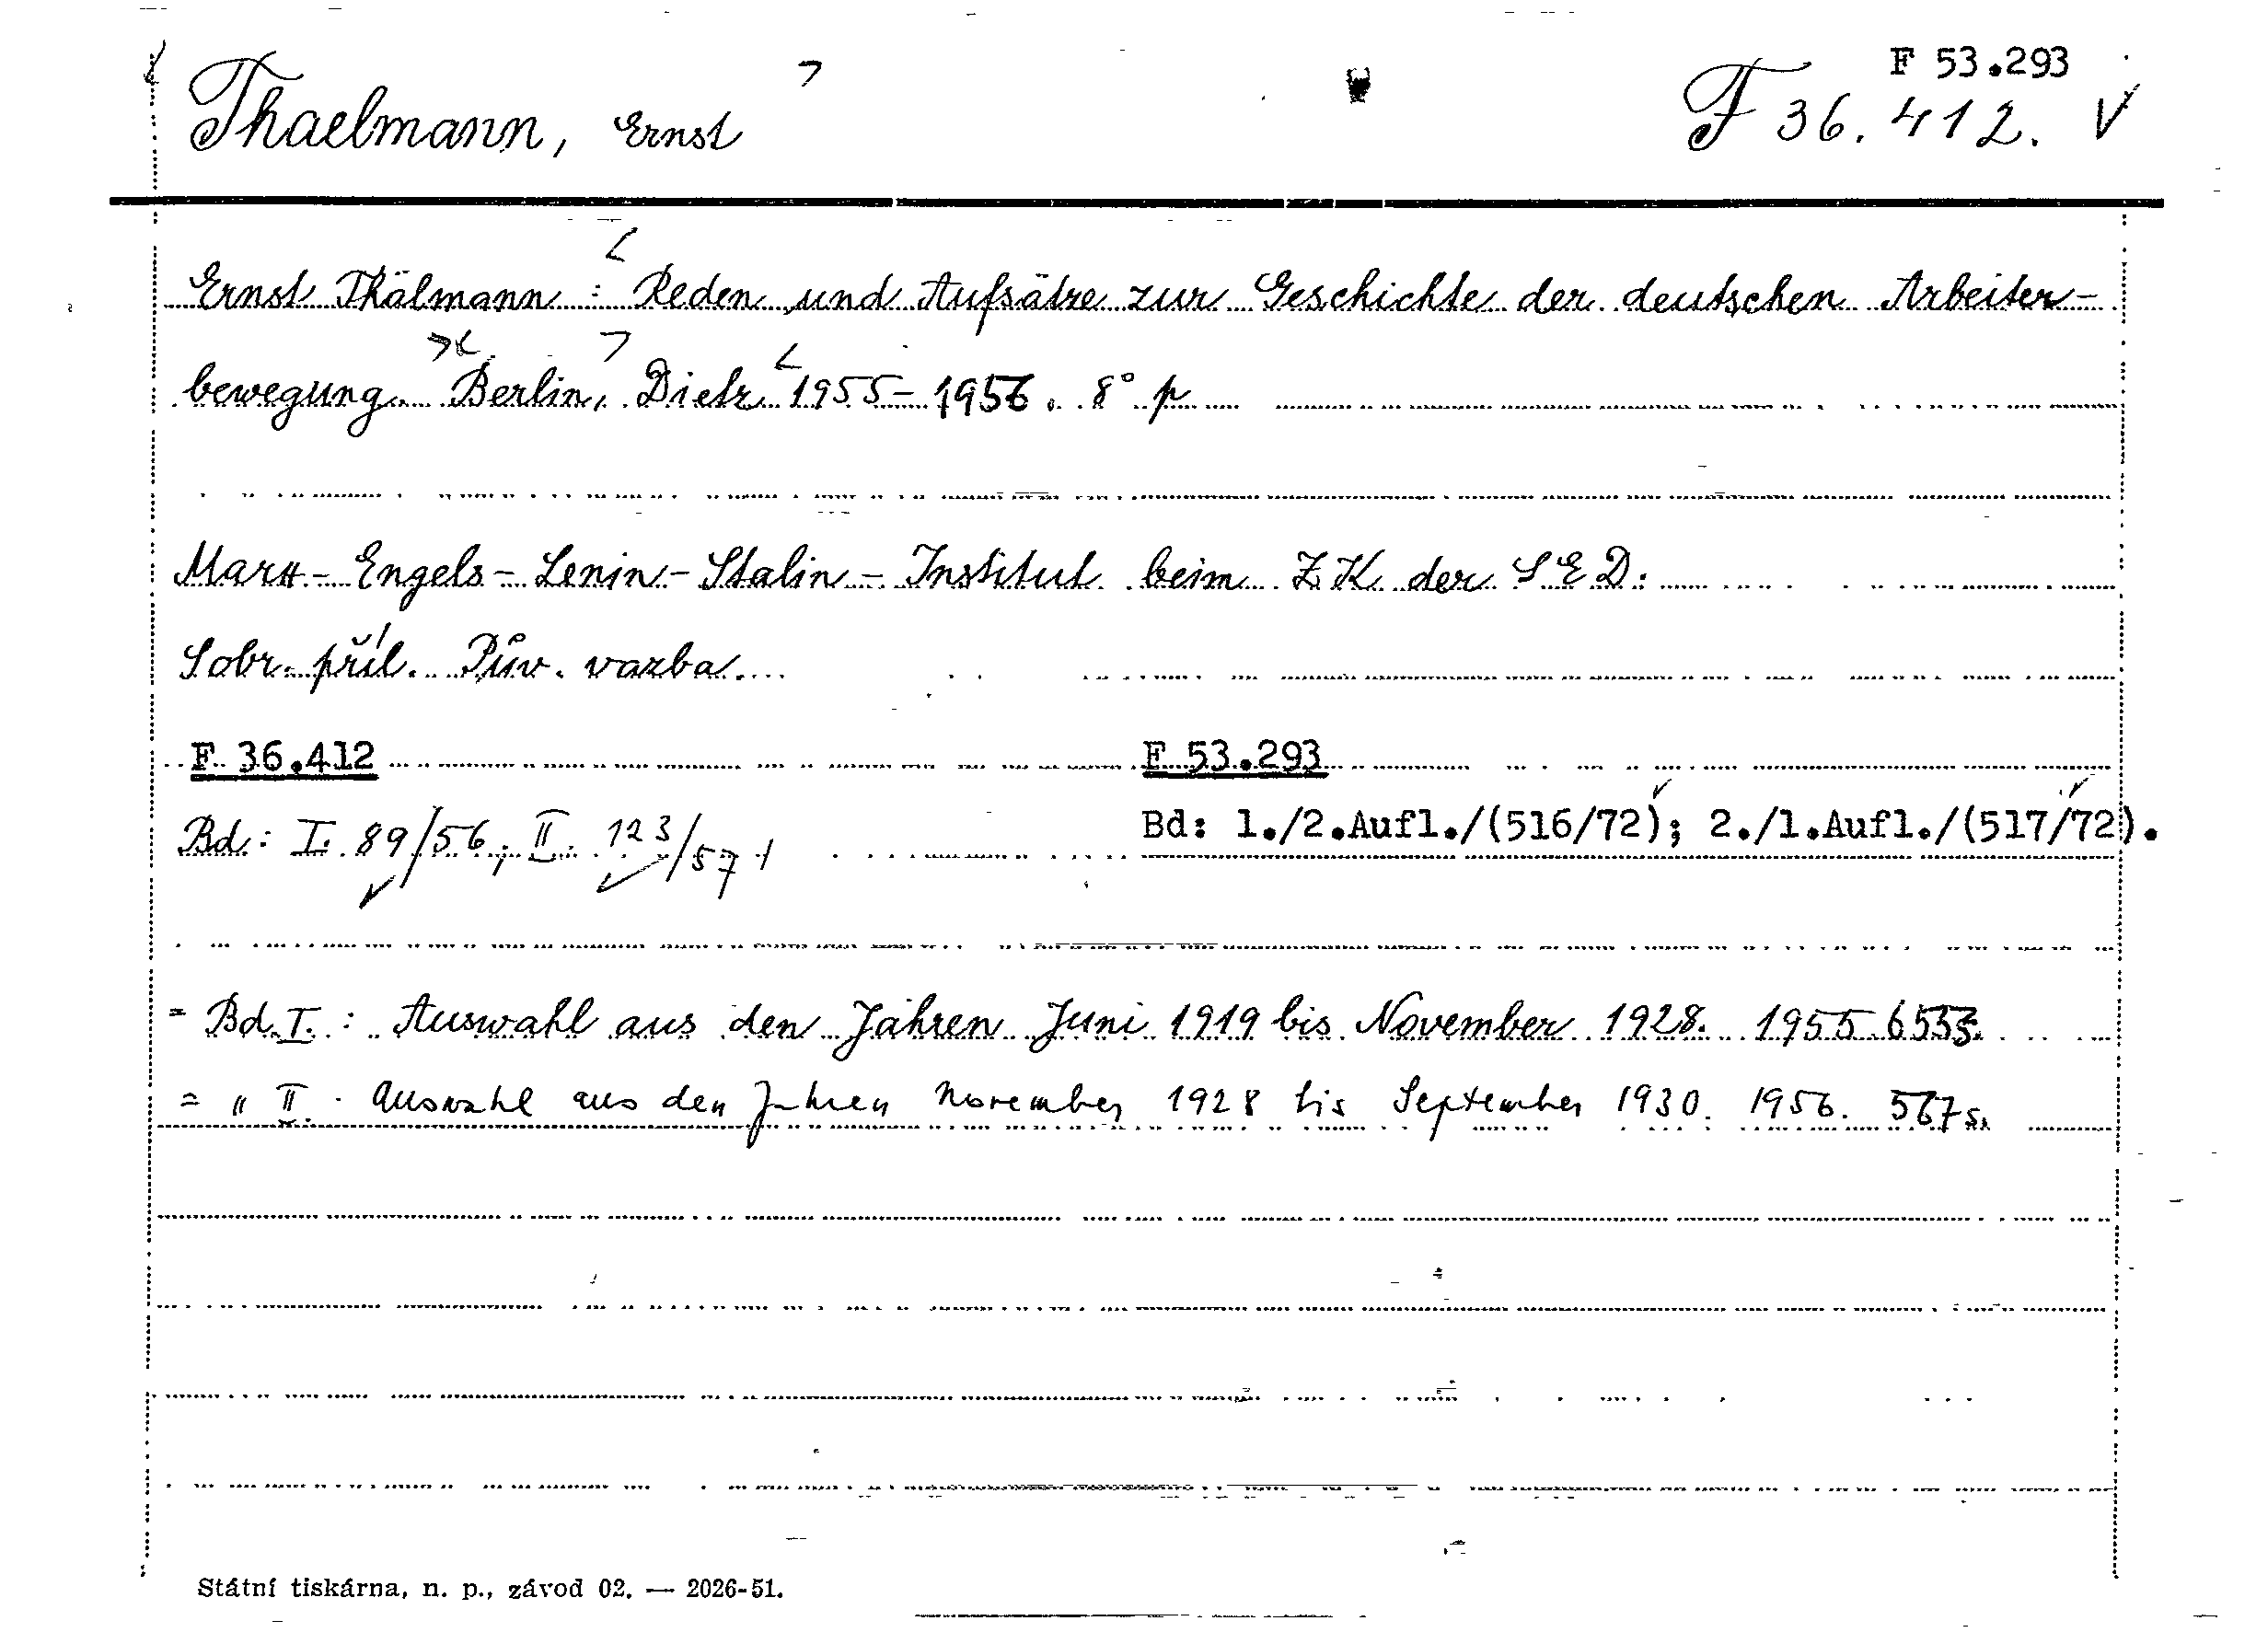 F 53.293
Thaelmann, Ernst F 36.412. V
Ernst Thälmann: Reden und Aufsätze zur Geschichte der deutschen Arbeiter-
bewegung. Berlin, Dietz 1955-1956. 8° p
Marx-Engels-Lenin-Stalin-Institut beim ZK der SED.
Sobr. příl. Pův. vazba.
F 36.412 F 53.293
Bd: I. 89/56, II. 123/57 Bd: 1./2.Aufl./(516/72); 2./1.Aufl./(517/72).
= Bd. I.: Auswahl aus den Jahren Juni 1919 bis November 1928. 1955. s.
= " II. Auswahl aus den Jahren November 1928 bis September 1930. 1956. 567 s.
Státní tiskárna, n. p., závod 02. — 2026-51.